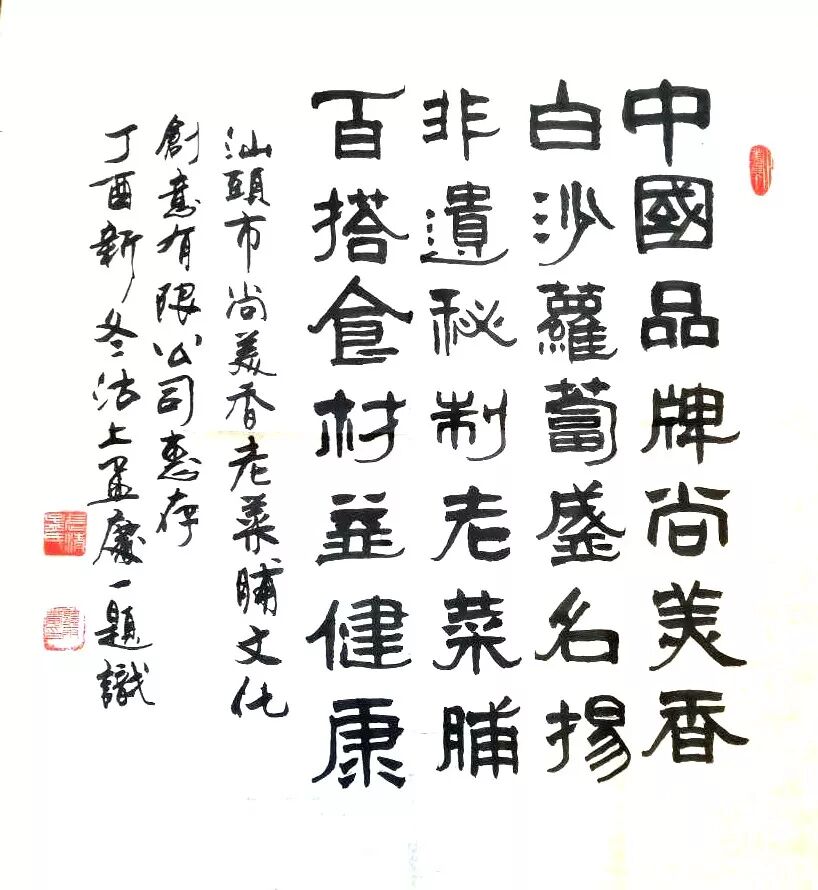 中國品牌尚美香
白沙蘿蔔盛名揚
非遺秘制老菜脯
百搭食材益健康
汕頭市尚美香老菜脯文化
創意有限公司惠存
丁酉新冬沽上孟慶一題識